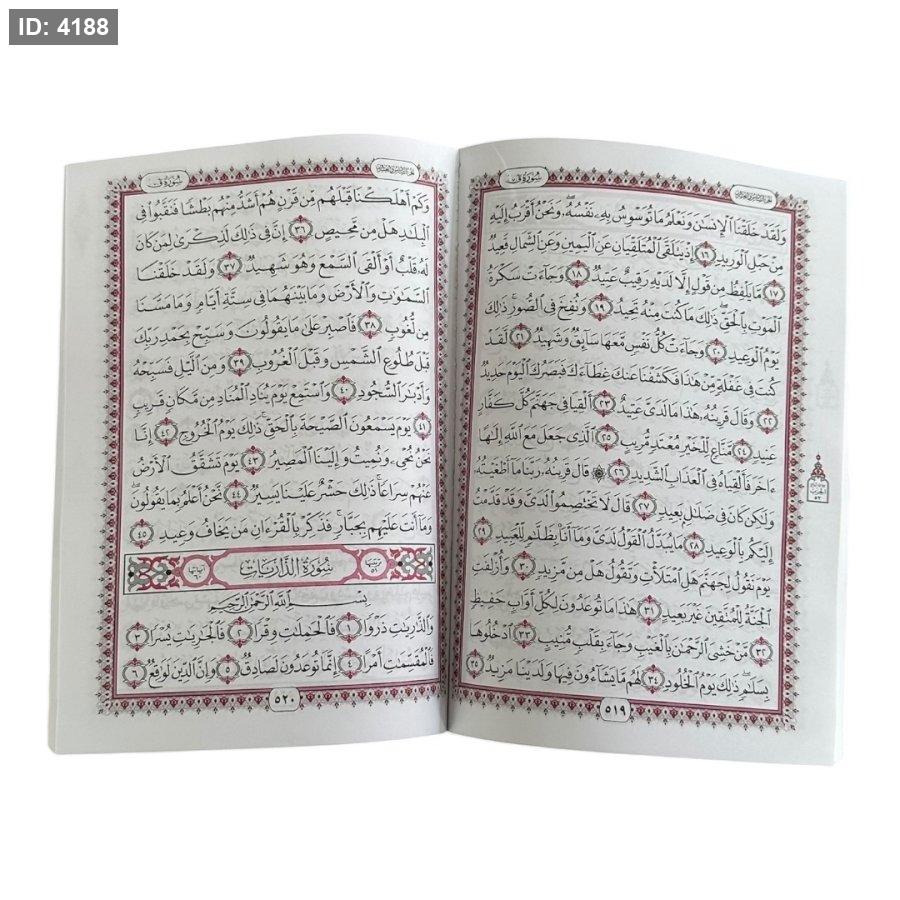 ID: 4188
الجزء السادس والعشرون
سُورَةُ قٓ
وَلَقَدْ خَلَقْنَا ٱلْإِنسَٰنَ وَنَعْلَمُ مَا تُوَسْوِسُ بِهِۦ نَفْسُهُۥۖ وَنَحْنُ أَقْرَبُ إِلَيْهِ
مِنْ حَبْلِ ٱلْوَرِيدِ ١٦ إِذْ يَتَلَقَّى ٱلْمُتَلَقِّيَانِ عَنِ ٱلْيَمِينِ وَعَنِ ٱلشِّمَالِ قَعِيدٌ
١٧ مَّا يَلْفِظُ مِن قَوْلٍ إِلَّا لَدَيْهِ رَقِيبٌ عَتِيدٌ ١٨ وَجَآءَتْ سَكْرَةُ
ٱلْمَوْتِ بِٱلْحَقِّۖ ذَٰلِكَ مَا كُنتَ مِنْهُ تَحِيدُ ١٩ وَنُفِخَ فِى ٱلصُّورِۚ ذَٰلِكَ
يَوْمُ ٱلْوَعِيدِ ٢٠ وَجَآءَتْ كُلُّ نَفْسٍ مَّعَهَا سَآئِقٌ وَشَهِيدٌ ٢١ لَّقَدْ
كُنتَ فِى غَفْلَةٍ مِّنْ هَٰذَا فَكَشَفْنَا عَنكَ غِطَآءَكَ فَبَصَرُكَ ٱلْيَوْمَ حَدِيدٌ
٢٢ وَقَالَ قَرِينُهُۥ هَٰذَا مَا لَدَىَّ عَتِيدٌ ٢٣ أَلْقِيَا فِى جَهَنَّمَ كُلَّ كَفَّارٍ
عَنِيدٍ ٢٤ مَّنَّاعٍ لِّلْخَيْرِ مُعْتَدٍ مُّرِيبٍ ٢٥ ٱلَّذِى جَعَلَ مَعَ ٱللَّهِ إِلَٰهًا
ءَاخَرَ فَأَلْقِيَاهُ فِى ٱلْعَذَابِ ٱلشَّدِيدِ ٢٦ ۞ قَالَ قَرِينُهُۥ رَبَّنَا مَآ أَطْغَيْتُهُۥ
وَلَٰكِن كَانَ فِى ضَلَٰلٍۭ بَعِيدٍ ٢٧ قَالَ لَا تَخْتَصِمُوا۟ لَدَىَّ وَقَدْ قَدَّمْتُ
إِلَيْكُم بِٱلْوَعِيدِ ٢٨ مَا يُبَدَّلُ ٱلْقَوْلُ لَدَىَّ وَمَآ أَنَا۠ بِظَلَّٰمٍ لِّلْعَبِيدِ ٢٩
يَوْمَ نَقُولُ لِجَهَنَّمَ هَلِ ٱمْتَلَأْتِ وَتَقُولُ هَلْ مِن مَّزِيدٍ ٣٠ وَأُزْلِفَتِ
ٱلْجَنَّةُ لِلْمُتَّقِينَ غَيْرَ بَعِيدٍ ٣١ هَٰذَا مَا تُوعَدُونَ لِكُلِّ أَوَّابٍ حَفِيظٍ
٣٢ مَّنْ خَشِىَ ٱلرَّحْمَٰنَ بِٱلْغَيْبِ وَجَآءَ بِقَلْبٍ مُّنِيبٍ ٣٣ ٱدْخُلُوهَا
بِسَلَٰمٍۖ ذَٰلِكَ يَوْمُ ٱلْخُلُودِ ٣٤ لَهُم مَّا يَشَآءُونَ فِيهَا وَلَدَيْنَا مَزِيدٌ ٣٥
٥١٩
الحزب
٥٢
الجزء السادس والعشرون
سُورَةُ قٓ
وَكَمْ أَهْلَكْنَا قَبْلَهُم مِّن قَرْنٍ هُمْ أَشَدُّ مِنْهُم بَطْشًا فَنَقَّبُوا۟ فِى
ٱلْبِلَٰدِ هَلْ مِن مَّحِيصٍ ٣٦ إِنَّ فِى ذَٰلِكَ لَذِكْرَىٰ لِمَن كَانَ
لَهُۥ قَلْبٌ أَوْ أَلْقَى ٱلسَّمْعَ وَهُوَ شَهِيدٌ ٣٧ وَلَقَدْ خَلَقْنَا
ٱلسَّمَٰوَٰتِ وَٱلْأَرْضَ وَمَا بَيْنَهُمَا فِى سِتَّةِ أَيَّامٍ وَمَا مَسَّنَا
مِن لُّغُوبٍ ٣٨ فَٱصْبِرْ عَلَىٰ مَا يَقُولُونَ وَسَبِّحْ بِحَمْدِ رَبِّكَ
قَبْلَ طُلُوعِ ٱلشَّمْسِ وَقَبْلَ ٱلْغُرُوبِ ٣٩ وَمِنَ ٱلَّيْلِ فَسَبِّحْهُ
وَأَدْبَٰرَ ٱلسُّجُودِ ٤٠ وَٱسْتَمِعْ يَوْمَ يُنَادِ ٱلْمُنَادِ مِن مَّكَانٍ قَرِيبٍ
٤١ يَوْمَ يَسْمَعُونَ ٱلصَّيْحَةَ بِٱلْحَقِّۚ ذَٰلِكَ يَوْمُ ٱلْخُرُوجِ ٤٢ إِنَّا
نَحْنُ نُحْىِۦ وَنُمِيتُ وَإِلَيْنَا ٱلْمَصِيرُ ٤٣ يَوْمَ تَشَقَّقُ ٱلْأَرْضُ
عَنْهُمْ سِرَاعًاۚ ذَٰلِكَ حَشْرٌ عَلَيْنَا يَسِيرٌ ٤٤ نَّحْنُ أَعْلَمُ بِمَا يَقُولُونَۖ
وَمَآ أَنتَ عَلَيْهِم بِجَبَّارٍۖ فَذَكِّرْ بِٱلْقُرْءَانِ مَن يَخَافُ وَعِيدِ ٤٥
ترتيبها ٥١ سُورَةُ الذَّارِيَات آياتها ٦٠
بِسْمِ ٱللَّهِ ٱلرَّحْمَٰنِ ٱلرَّحِيمِ
وَٱلذَّٰرِيَٰتِ ذَرْوًا ١ فَٱلْحَٰمِلَٰتِ وِقْرًا ٢ فَٱلْجَٰرِيَٰتِ يُسْرًا ٣
فَٱلْمُقَسِّمَٰتِ أَمْرًا ٤ إِنَّمَا تُوعَدُونَ لَصَادِقٌ ٥ وَإِنَّ ٱلدِّينَ لَوَٰقِعٌ ٦
٥٢٠